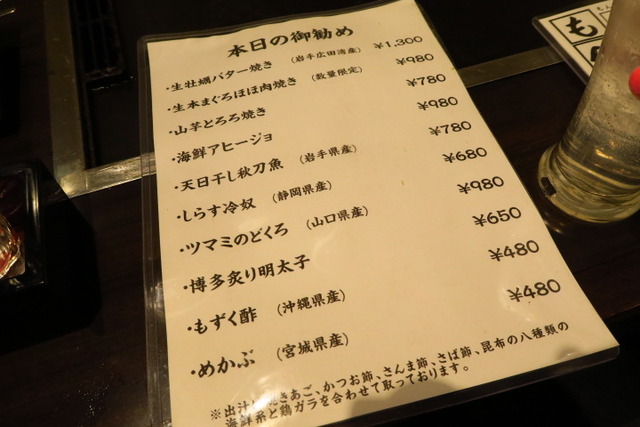 本日の御勧め
・生牡蠣バター焼き (岩手広田湾産) ¥1,300
・生本まぐろほほ肉焼き (数量限定) ¥980
・山芋とろろ焼き ¥780
・海鮮アヒージョ ¥980
・天日干し秋刀魚 (岩手県産) ¥780
・しらす冷奴 (静岡県産) ¥680
・ツマミのどくろ (山口県産) ¥980
・博多炙り明太子 ¥650
・もずく酢 (沖縄県産) ¥480
・めかぶ (宮城県産) ¥480
※出汁は焼きあご、かつお節、さんま節、さば節、昆布の八種類の
海鮮系と鶏ガラを合わせて取っております。
も